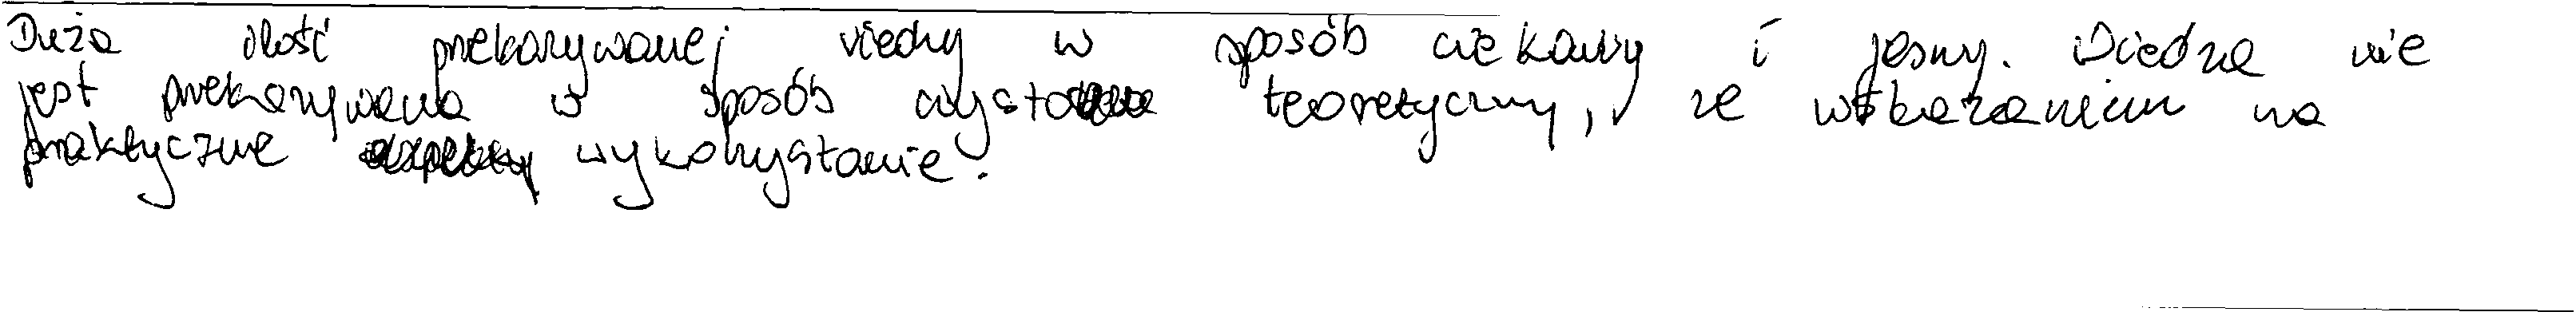 Duża ilość przekazywanej wiedzy w sposób ciekawy i jasny. Wiedza nie
jest przekazywana w sposób czysto teoretyczny, ze wskazaniem na
praktyczne wykorzystanie.